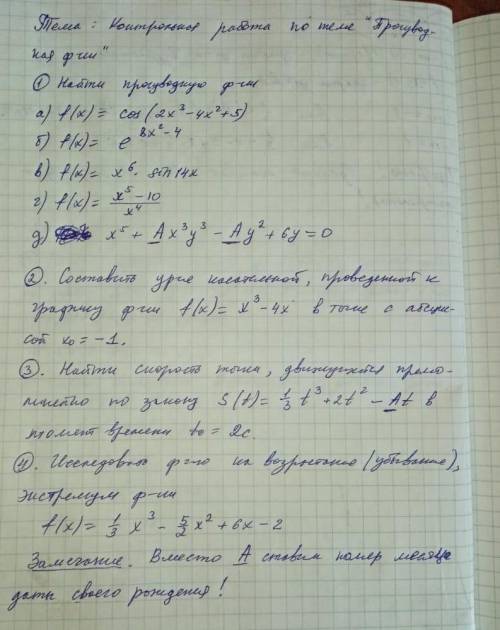 Тема: Контрольная работа по теме "Производ-
ная ф-ии"
① Найти производную ф-ии
а) f(x) = cos(2x³ - 4x² + 5)
б) f(x) = e^(8x² - 4)
в) f(x) = x⁶ · sin 14x
г) f(x) = (x⁵ - 10)/x⁴
д) x⁵ + Ax³y³ - Ay² + 6y = 0
②. Составить ур-ие касательной, проведенной к
графику ф-ии f(x) = x³ - 4x в точке с абсцис-
сой x₀ = -1.
③. Найти скорость точки, движущейся прямо-
линейно по закону S(t) = 1/3 t³ + 2t² - At в
момент времени t₀ = 2c.
④. Исследовать ф-ю на возрастание (убывание),
экстремум ф-ии
f(x) = 1/3 x³ - 5/2 x² + 6x - 2
Замечание. Вместо A ставим номер месяца
даты своего рождения!